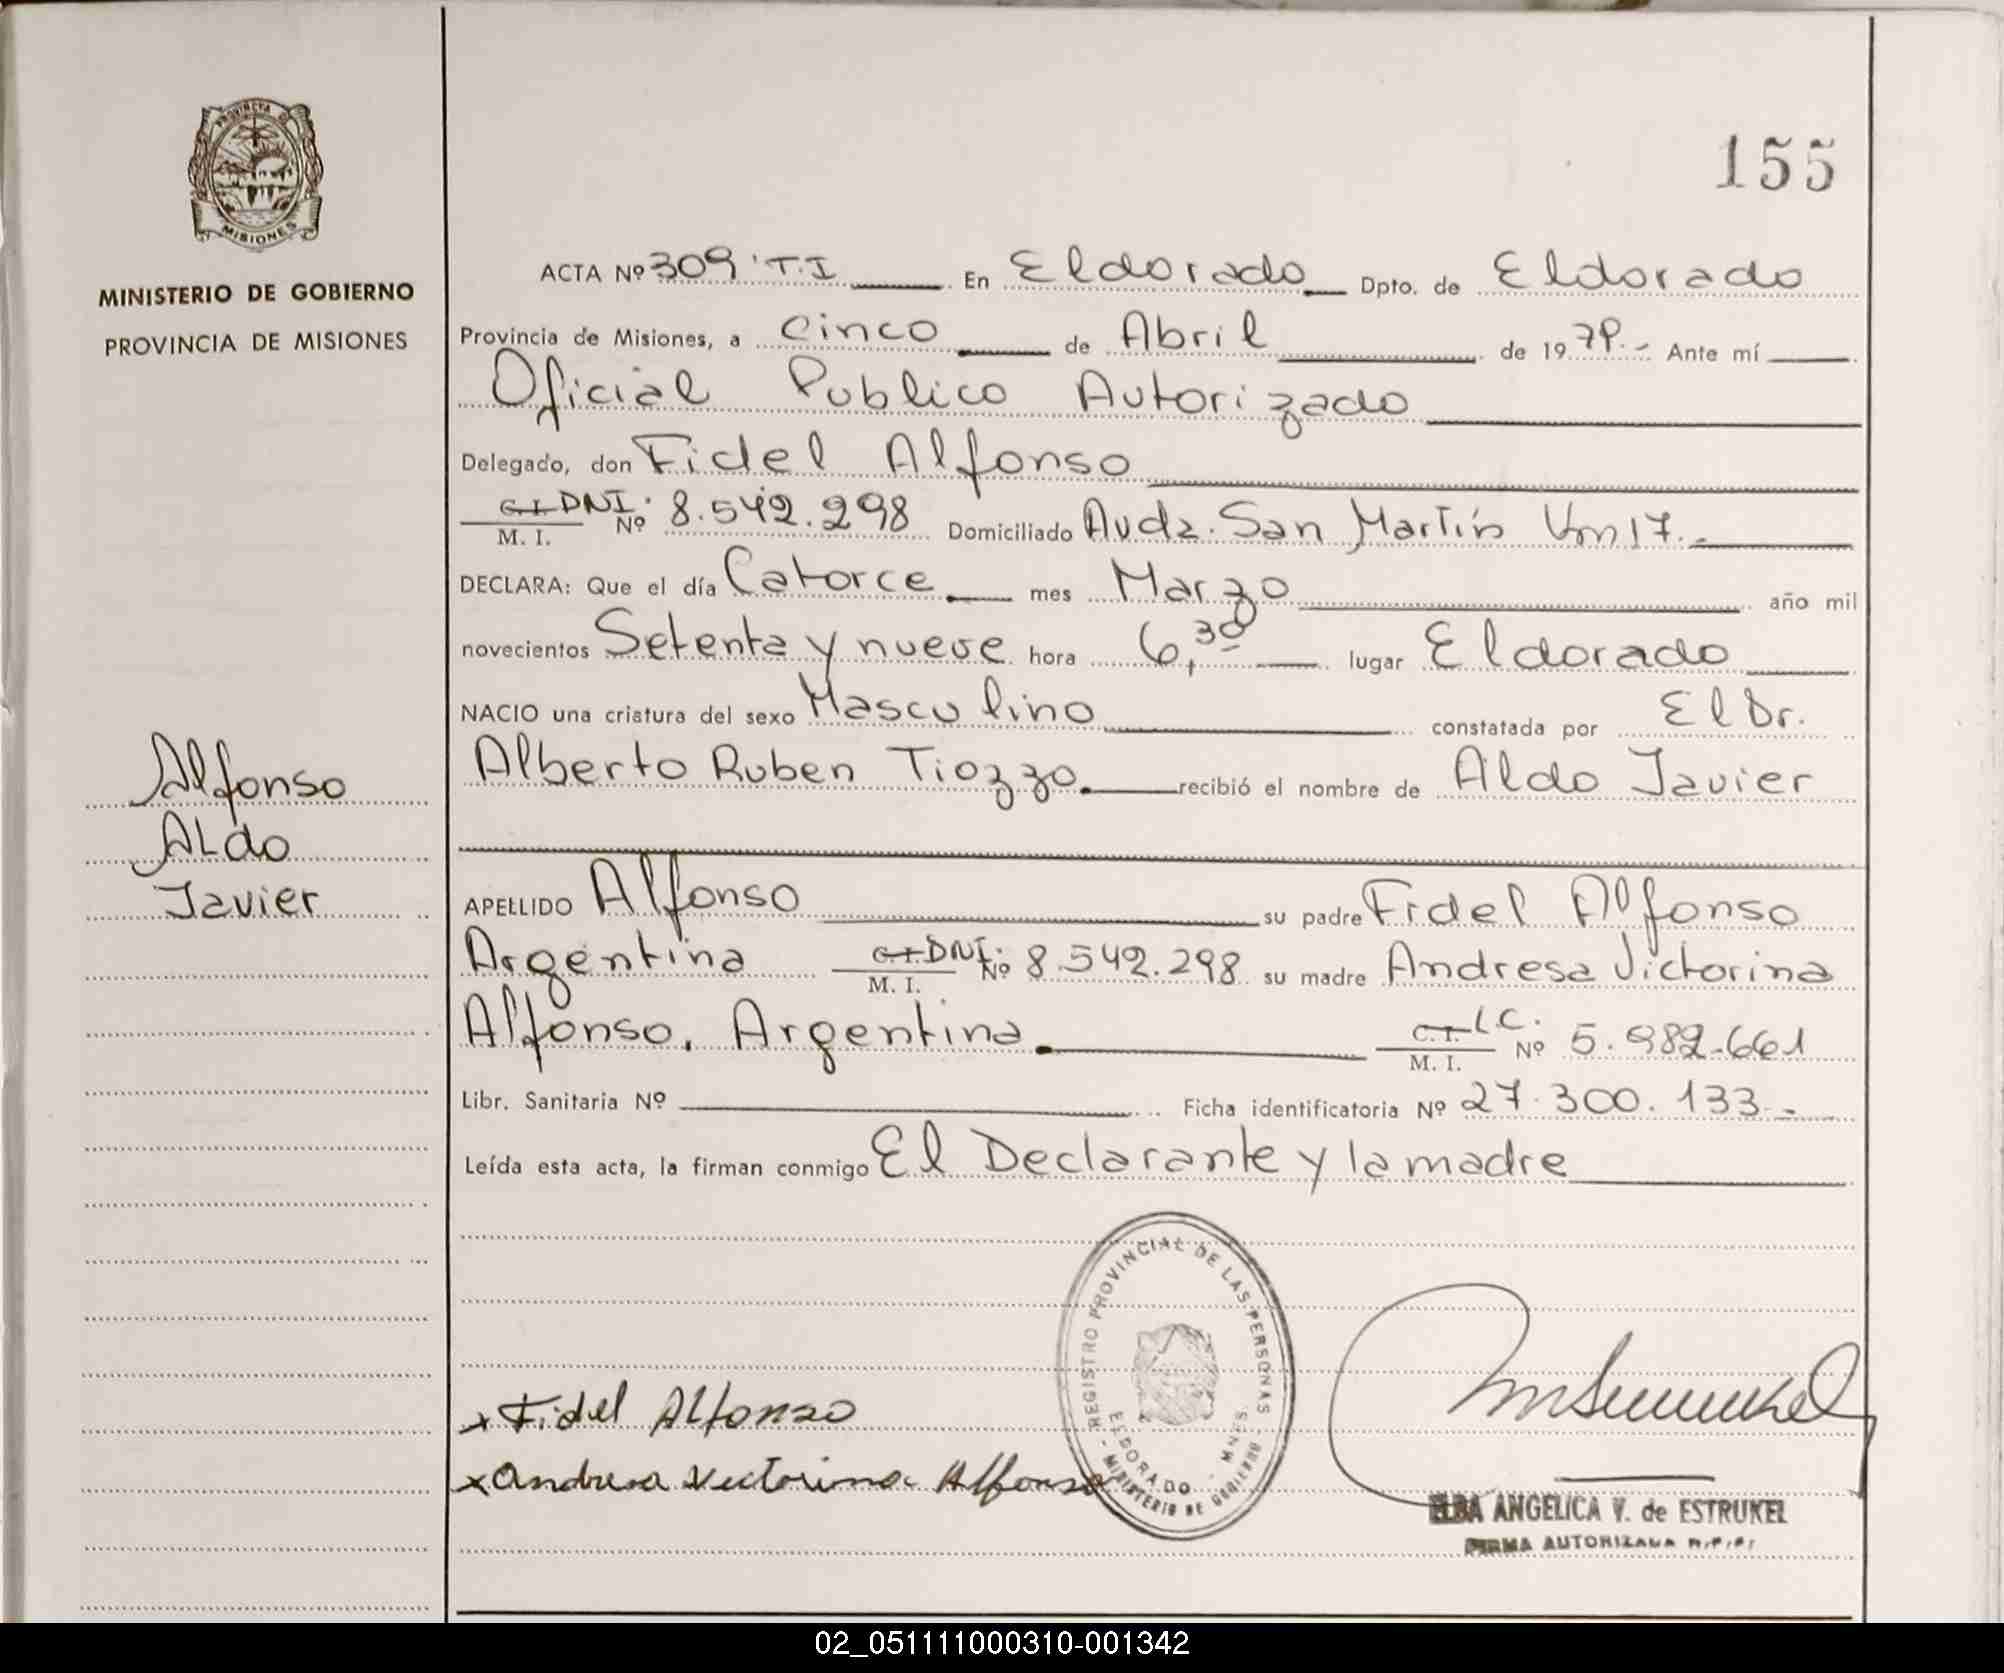 PROVINCIA DE
MISIONES
MINISTERIO DE GOBIERNO
PROVINCIA DE MISIONES
Alfonso
ALdo
Javier
155
ACTA Nº 309 T.I En Eldorado Dpto. de Eldorado
Provincia de Misiones, a Cinco de Abril de 1979.- Ante mí
Oficial Publico Autorizado
Delegado, don Fidel Alfonso
C.I. DNI. M. I. Nº 8.542.298 Domiciliado Avda. San Martín Km 17.-
DECLARA: Que el día Catorce mes Marzo año mil
novecientos Setenta y nueve hora 6,30 lugar Eldorado
NACIO una criatura del sexo Masculino constatada por El Dr.
Alberto Ruben Tiozzo recibió el nombre de Aldo Javier
APELLIDO Alfonso su padre Fidel Alfonso
Argentina C.I. DNI. M. I. Nº 8.542.298 su madre Andresa Victorina
Alfonso, Argentina C.I. L.C. M. I. Nº 5.982.661
Libr. Sanitaria Nº Ficha identificatoria Nº 27.300.133.-
Leída esta acta, la firman conmigo El Declarante y la madre
REGISTRO PROVINCIAL DE LAS PERSONAS
ELDORADO - MNES.
- MINISTERIO DE GOBIERNO -
x Fidel Alfonso
x Andresa Victorina Alfonso
ELBA ANGELICA V. de ESTRUKEL
FIRMA AUTORIZADA R.P.P.
02_051111000310-001342